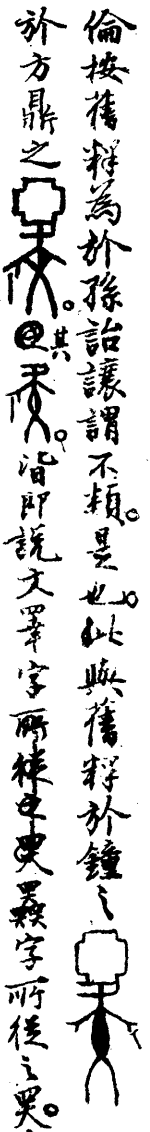 倫按舊釋為於孫詒讓謂不類。是也。此與舊釋於鐘之
於方鼎之。其。皆即說文字所從之字所從之。